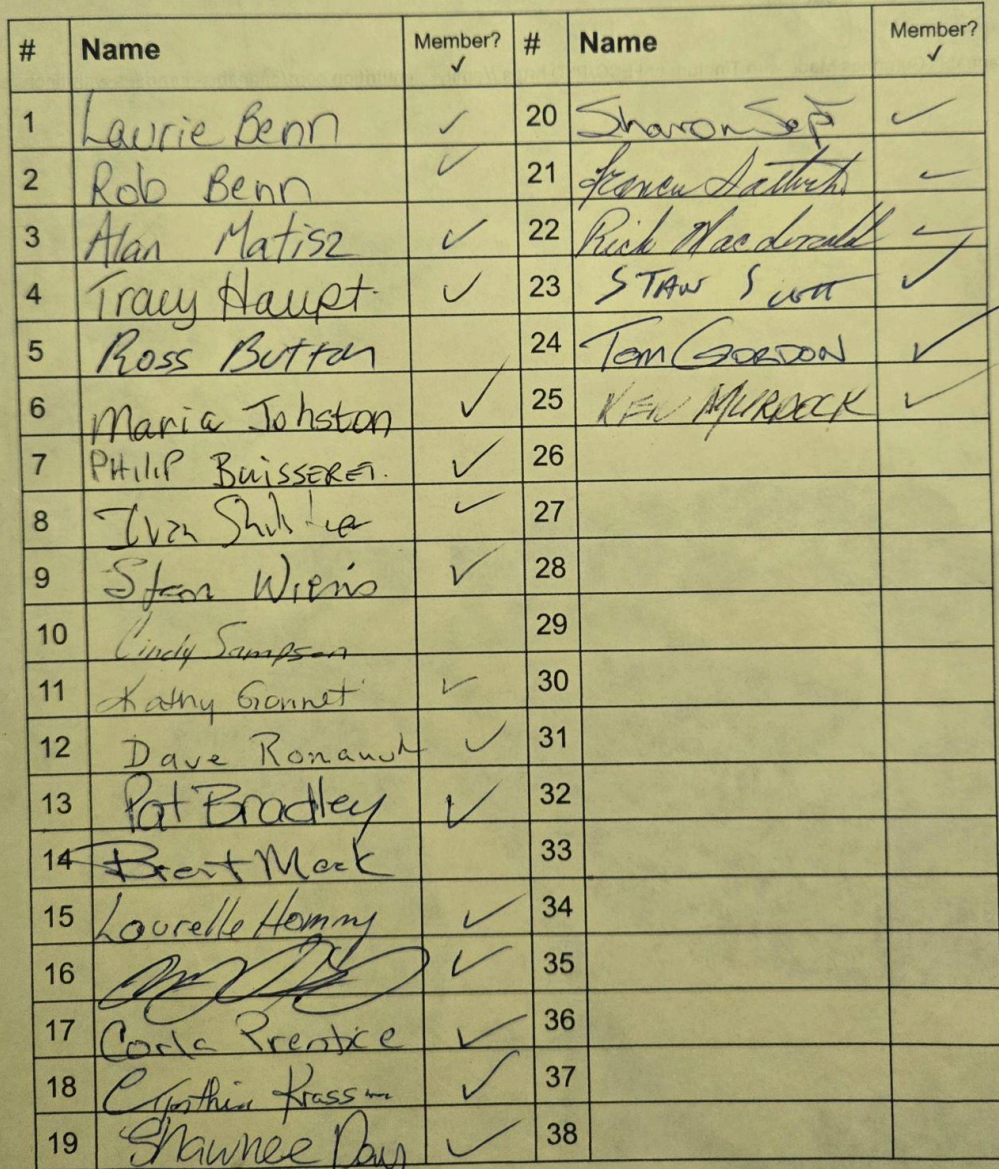 # Name Member? ✓ # Name Member? ✓
1 Laurie Benn ✓ 20 Sharon ✓
2 Rob Benn ✓ 21 ✓
3 Alan Matisz ✓ 22 Rick Macdonald ✓
4 Tracy Haupt ✓ 23 Scott ✓
5 Ross Button 24 Tom GORDON ✓
6 Maria Johston ✓ 25 KEN MURDOCK ✓
7 PHILIP BUISSERET. ✓ 26
8 Ivan ✓ 27
9 Stan Wiens ✓ 28
10 Cindy Sampson 29
11 Kathy Gonnet ✓ 30
12 Dave ✓ 31
13 Pat Bradley ✓ 32
14 Brent Mack 33
15 Lourelle ✓ 34
16 ✓ 35
17 Carla Prentice ✓ 36
18 Cynthia ✓ 37
19 Shawnee Day ✓ 38